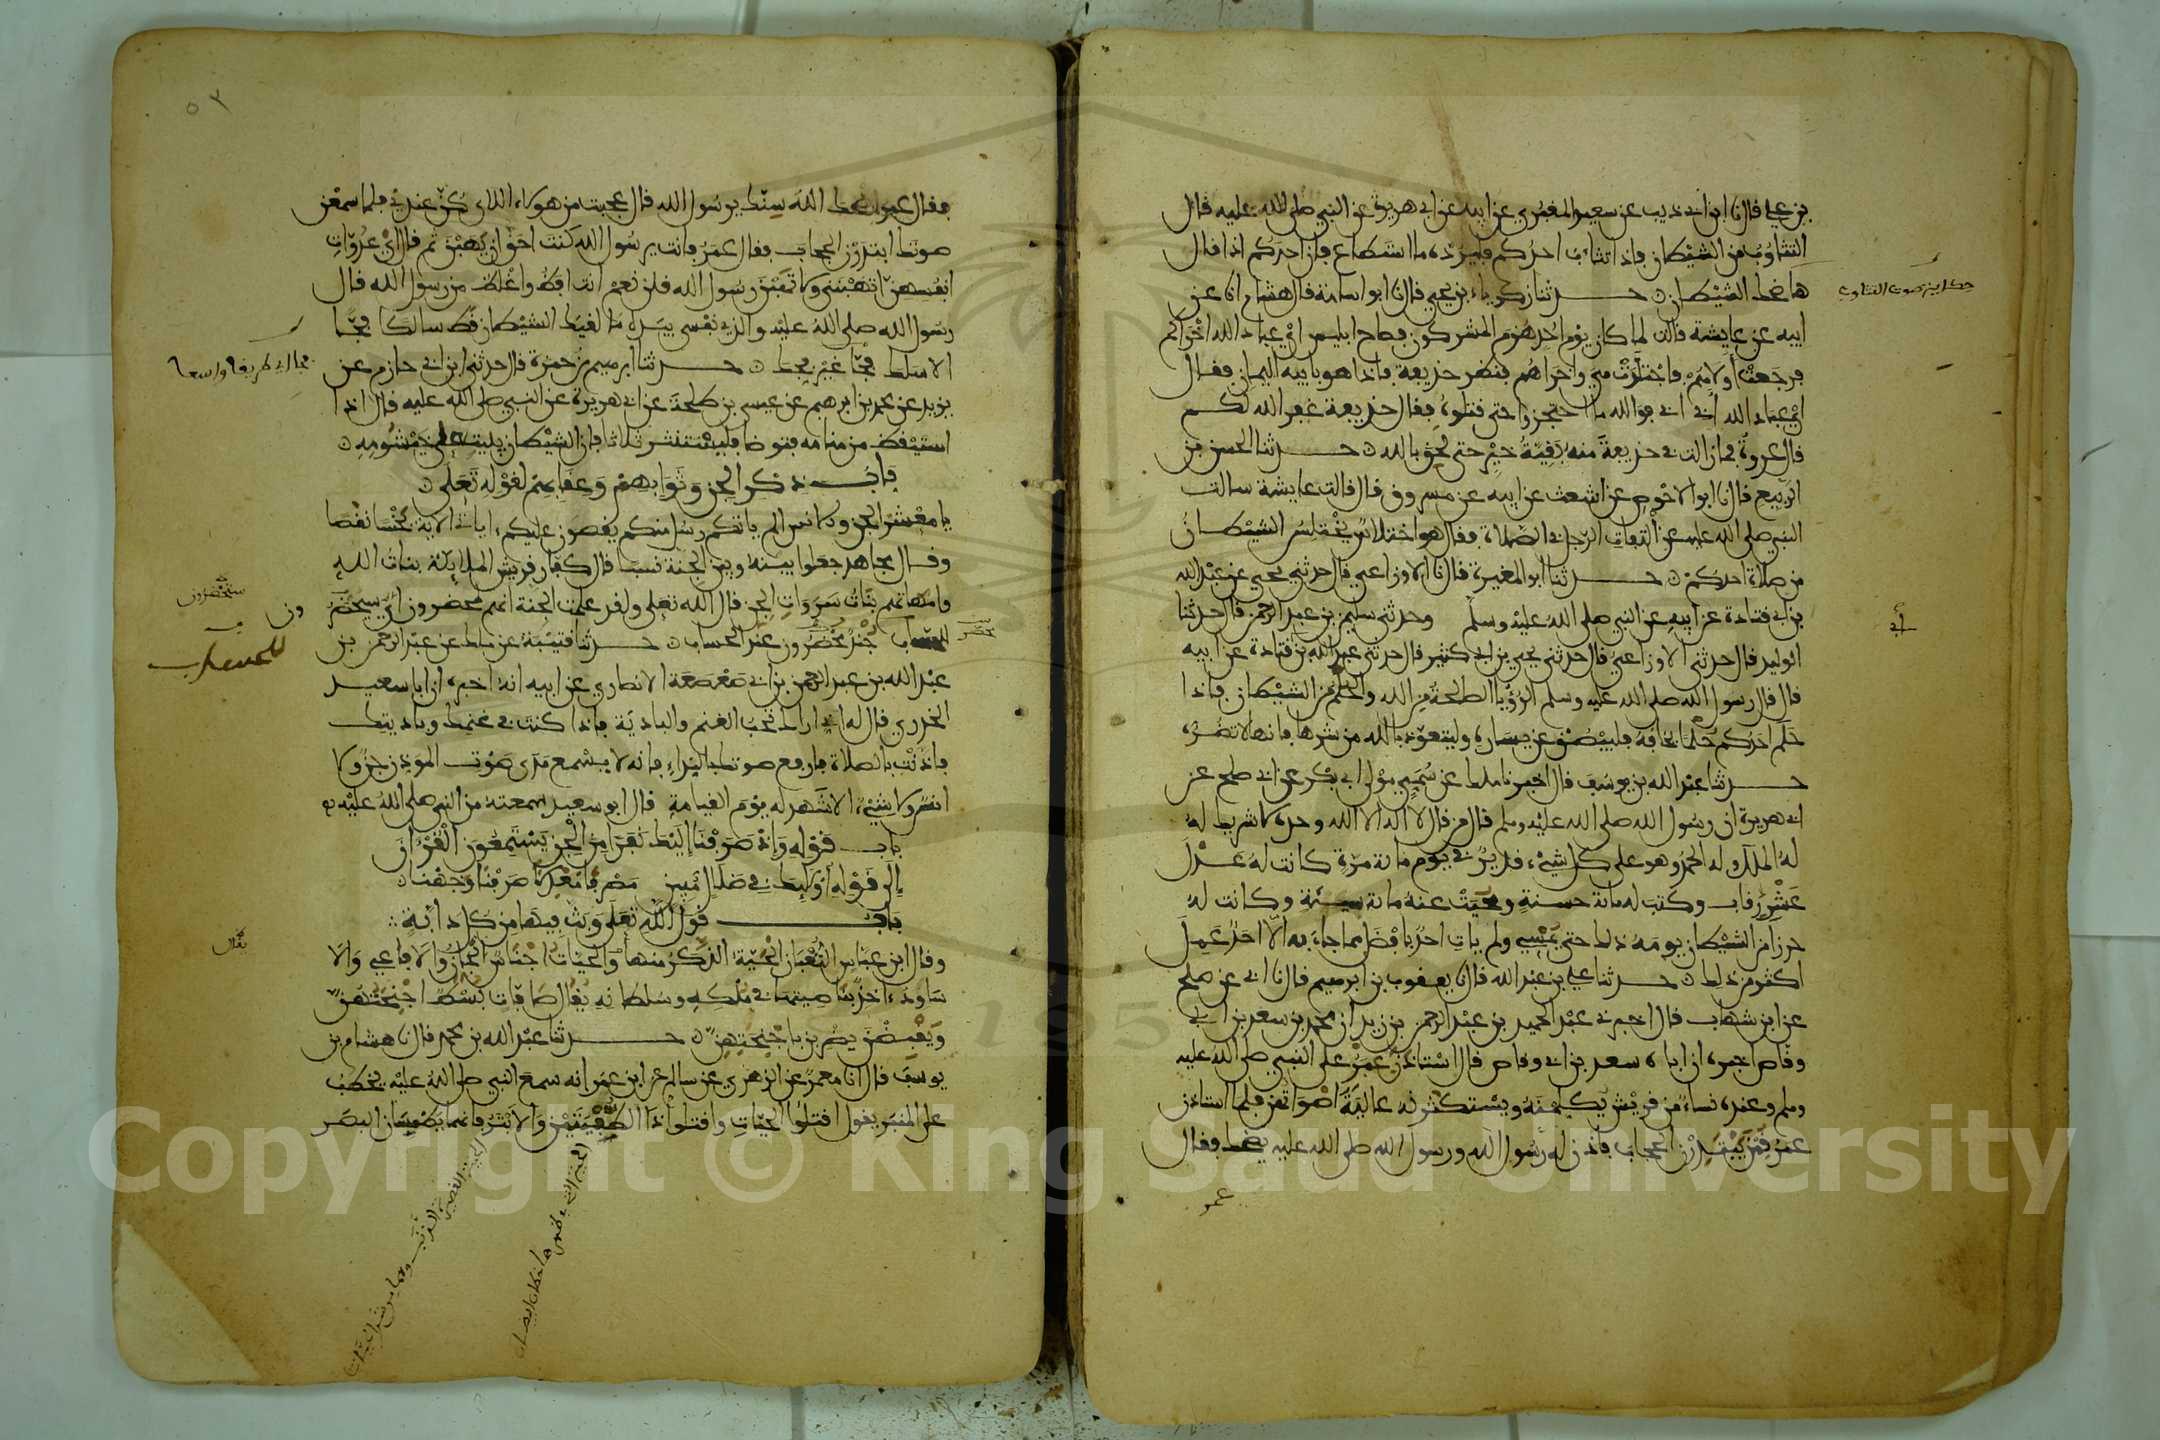 بن علي قال نا ابن ابي ذيب عن سعيد المقبري عن ابيه عن ابي هريرة عن النبي صلى الله عليه قال
التثاوب من الشيطان فاذا تثاءب احدكم فليرده ما استطاع فإن احدكم اذا قال
ها ضحك الشيطان حدثنا زكرياء بن يحيى قال نا ابو اسامة قال هشام انا عن
ابيه عن عايشة قالت لما كان يوم احد هزم المشركون فصاح ابليس اي عباد الله اخراكم
فرجعت أولاهم فاجتلدت هي واخراهم فنظر حذيفة فاذا هو بابيه اليمان فقال
اي عباد الله أبي ابي فوالله ما احتجزوا حتى قتلوه فقال حذيفة غفر الله لكم
قال عروة فما زالت في حذيفة منه بقية خير حتى لحق بالله حدثنا الحسن بن
الربيع قال نا ابو الاحوص عن اشعث عن ابيه عن مسروق قال قالت عايشة سالت
النبي صلى الله عليه عن التفات الرجل في الصلاة فقال هو اختلاس يختلس الشيطان
من صلاة احدكم حدثنا ابو المغيرة قال نا الاوزاعي قال حدثني يحيى عن عبد الله
بن ابي قتادة عن ابيه عن النبي صلى الله عليه وسلم وحدثني سليمن بن عبد الرحمن قال حدثنا
الوليد قال حدثني الاوزاعي قال حدثني يحيى بن ابي كثير قال حدثني عبد الله بن قتادة عن ابيه
قال قال رسول الله صلى الله عليه وسلم الرؤيا الصالحة من الله والحلم من الشيطان فاذا
حلم احدكم حلما يخافه فليبصق عن يساره وليتعوذ بالله من شرها فانها لا تضره
حدثنا عبد الله بن يوسف قال اخبرنا ملك عن سمي مولى ابي بكر عن ابي صلح عن
ابي هريرة ان رسول الله صلى الله عليه وسلم قال من قال لا اله الا الله وحده لا شريك له
له الملك وله الحمد وهو على كل شيء قدير في يوم مائة مرة كانت له عدل
عشر رقاب وكتب له مائة حسنة ومحيت عنه مائة سيئة وكانت له
حرزا من الشيطان يومه ذلك حتى يمسي ولم يات احد بافضل مما جاء به الا احد عمل
اكثر من ذلك حدثنا علي بن عبد الله قال نا يعقوب بن ابرهيم قال نا ابي عن صلح
عن ابن شهاب قال اخبرني عبد الحميد بن عبد الرحمن بن زيد ان محمد بن سعد بن ابي
وقاص اخبره ان اباه سعد بن ابي وقاص قال استاذن عمر على النبي صلى الله عليه
وسلم وعنده نساء من قريش يكلمنه ويستكثرنه عالية اصواتهن فلما استاذن
عمر قمن يبتدرن الحجاب فاذن له رسول الله ورسول الله صلى الله عليه يضحك فقال
عمر
٥٢
فقال عمر اضحك الله سنك يرسول الله قال عجبت من هؤلاء اللاء كن عندي فلما سمعن
صوتك ابتدرن الحجاب فقال عمر فانت يرسول الله كنت احق ان يهبن ثم قال اي عدوات
انفسهن اتهبنني ولا تهبن رسول الله قلن نعم انت افظ واغلظ من رسول الله قال
رسول الله صلى الله عليه والذي نفسي بيده ما لقيك الشيطان قط سالكا فجا
الا سلك فجا غير فجك حدثنا ابرهيم بن حمزة قال حدثني ابن ابي حازم عن
يزيد عن محمد بن ابرهيم عن عيسى بن طلحة عن ابي هريرة عن النبي صلى الله عليه قال اذا
استيقظ من منامه فتوضا فليستنثر ثلاثا فإن الشيطان يبيت على خيشومه
باب ذكر الجن وثوابهم وعقابهم لقوله تعلى
يا معشر الجن والانس الم ياتكم رسل منكم يقصون عليكم ءاياتي الاية بخسا نقصا
وقال مجاهد جعلوا بينه وبين الجنة نسبا قال كفار قريش الملايكة بنات الله
وامهاتهم بنات سروات الجن قال الله تعلى ولقد علمت الجنة انهم لمحضرون اي سيحضر
للحساب جند محضرون عند الحساب حدثنا قتيبة عن ملك عن عبد الرحمن بن
عبد الله بن عبد الرحمن بن ابي صعصعة الانصاري عن ابيه انه اخبره ان ابا سعيد
الخدري قال له اني اراك تحب الغنم والبادية فاذا كنت في غنمك وباديتك
فاذنت بالصلاة فارفع صوتك بالنداء فانه لا يسمع مدى صوت الموذن جن ولا
انس ولا شيء الا شهد له يوم القيامة قال ابو سعيد سمعته من النبي صلى الله عليه
باب قوله واذ صرفنا إليك نفرا من الجن يستمعون القرءان
إلى قوله أولئك في ضلال مبين مصرفا معدلا صرفنا وجهنا
باب قول الله تعلى وبث فيها من كل دابة
وقال ابن عباس الثعبان الحية الذكر منها والحيات اجناس الجان والافاعي والا
ساود ءاخذ بناصيتها في ملكه وسلطانه يقال صافات بسط اجنحتهن
ويقبضن يضربن باجنحتهن حدثنا عبد الله بن محمد قال نا هشام بن
يوسف قال انا معمر عن الزهري عن سالم عن ابن عمر انه سمع النبي صلى الله عليه يخطب
على المنبر يقول اقتلوا الحيات واقتلوا ذا الطفيتين والابتر فانهما يطمسان البصر
Copyright © King Saud University